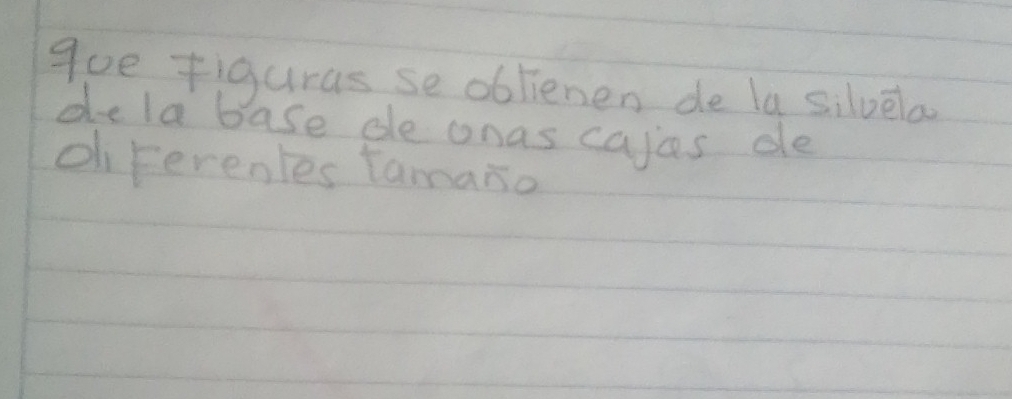 que figuras se obtienen de la silueta
de la base de unas cajas de
diferentes tamaño